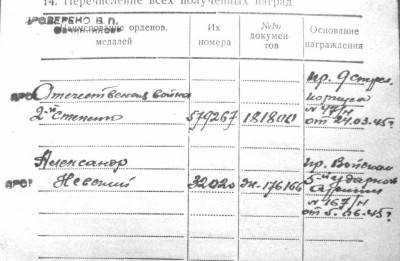 14. Перечисление всех полученных наград
ПРОВЕРЕНО В.П.
Наименование орденов,
медалей
Их
номера
№№
докумен-
тов
Основание
награждения
Отечественная война
2й степени
579267
пр. 9 стрел.
корпуса
от 24.03.45г
Александр
Невский
32020
пр. Войскам
5й ударной
армии
№ 467/н
от 5.06.45г